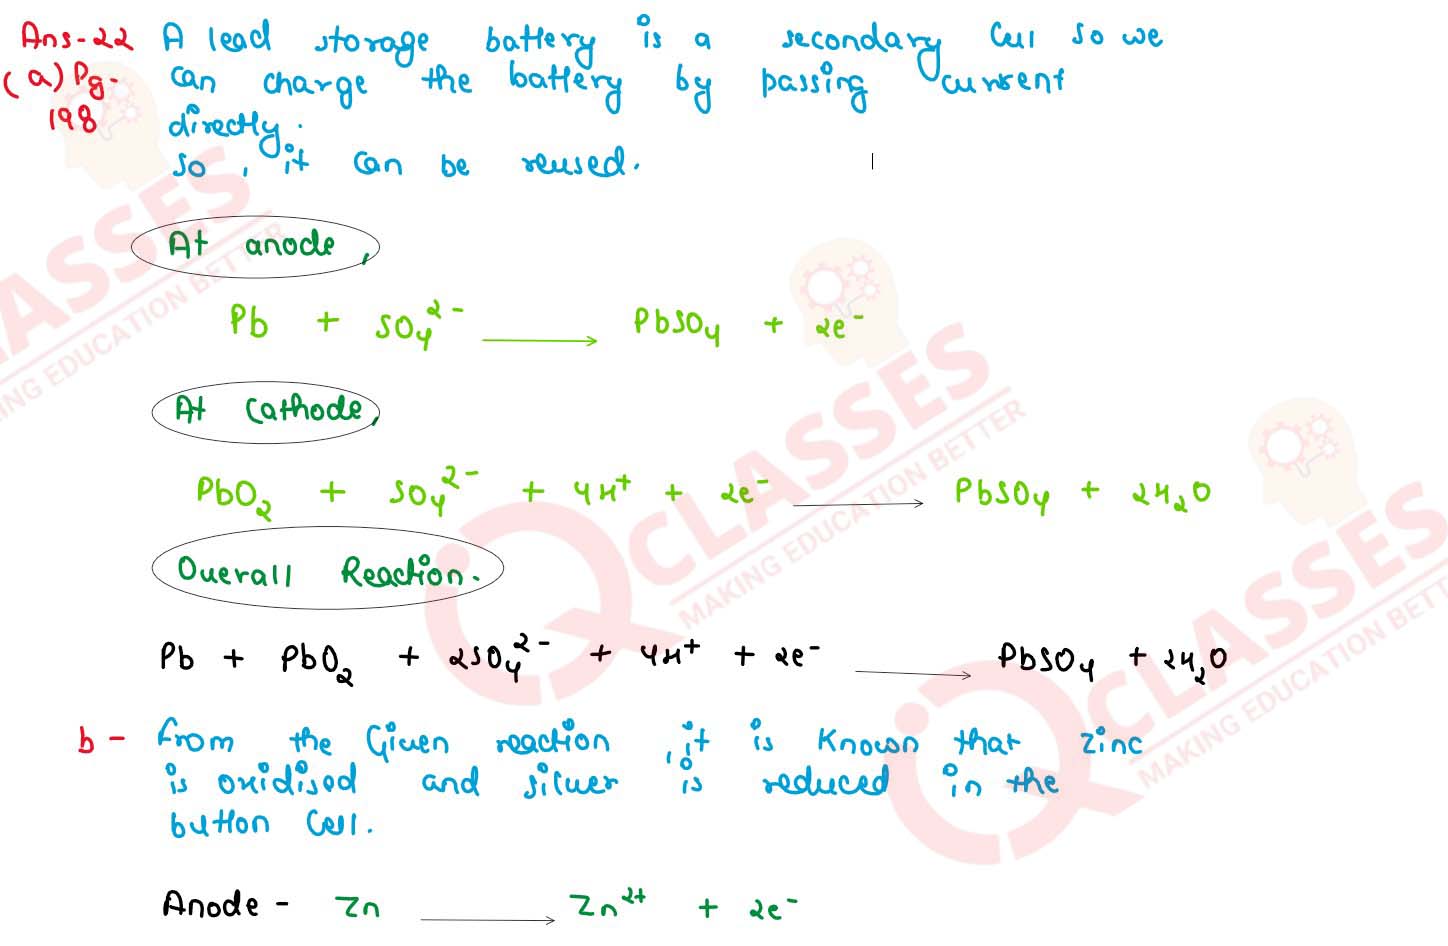 Ans-22 A lead storage battery is a secondary Cell so we
(a) Pg- can charge the battery by passing current
198 directly.
so, it can be reused.
At anode,
Pb + SO₄²⁻ ⟶ PbSO₄ + 2e⁻
At Cathode,
PbO₂ + SO₄²⁻ + 4H⁺ + 2e⁻ ⟶ PbSO₄ + 2H₂O
Overall Reaction.
Pb + PbO₂ + 2SO₄²⁻ + 4H⁺ + 2e⁻ ⟶ PbSO₄ + 2H₂O
b- From the Given reaction, it is Known that zinc
is oxidised and silver is reduced in the
button Cell.
Anode - Zn ⟶ Zn²⁺ + 2e⁻
IQ CLASSES
MAKING EDUCATION BETTER